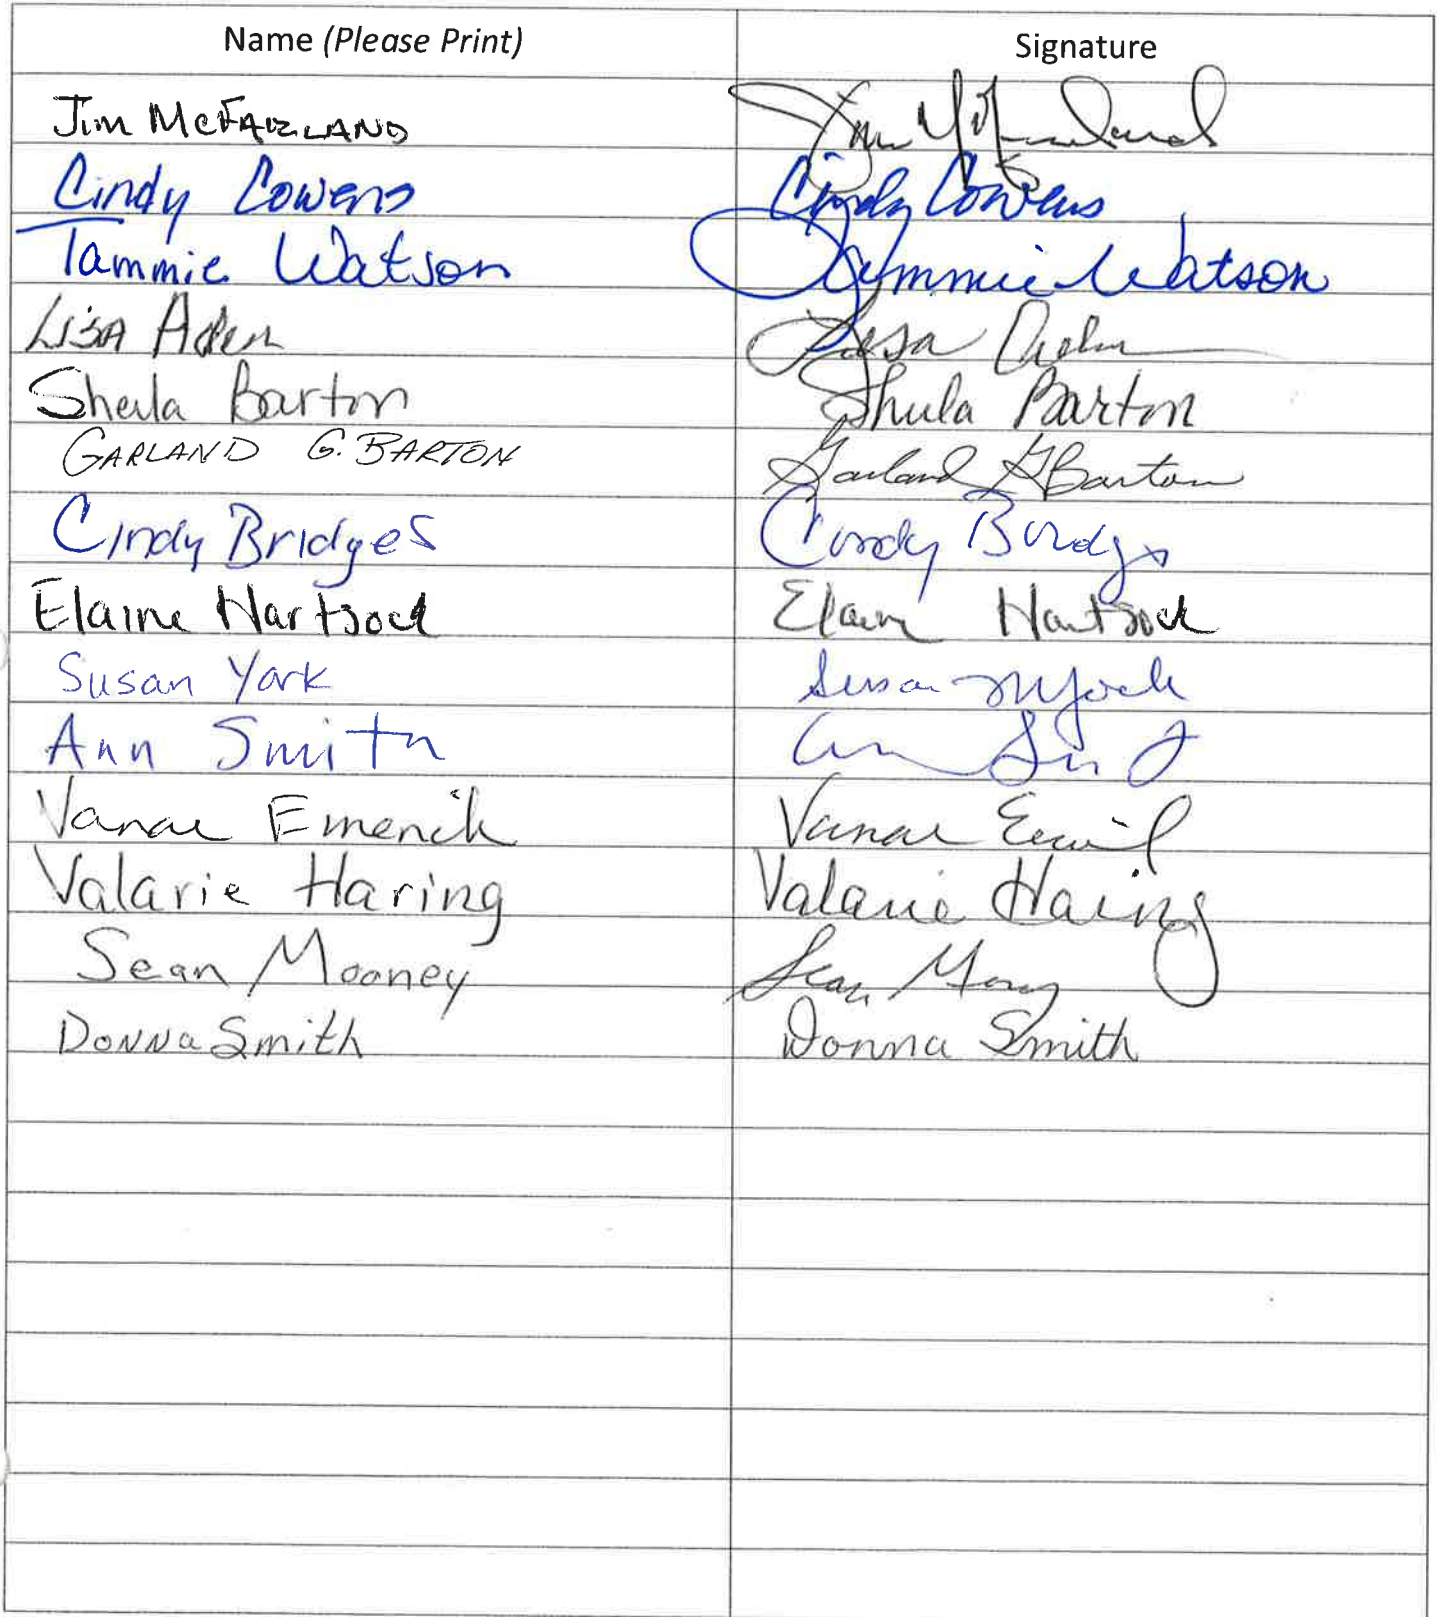 Name (Please Print) Signature
Jim McFARLAND Jim McFarland
Cindy Cowens Cindy Cowens
Tammie Watson Tammie Watson
Lisa Lisa
Sheila Barton Sheila Barton
GARLAND G. BARTON Garland G Barton
Cindy Bridges Cindy Bridges
Elaine Hartsock Elaine Hartsock
Susan York Susan M York
Ann Smith Ann Smith
Vanae Emerick Vanae
Valarie Haring Valarie Haring
Sean Mooney Sean Mooney
Donna Smith Donna Smith